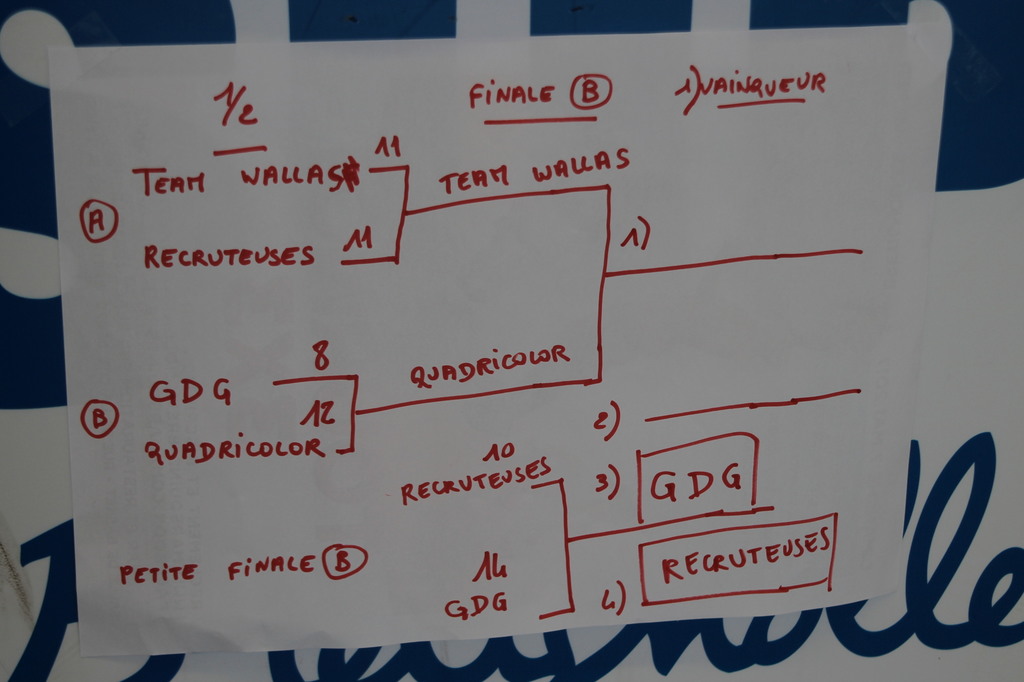 1/2
FINALE B
1) VAINQUEUR
TEAM WALLAS 11
TEAM WALLAS
A
RECRUTEUSES 11
1)
GDG 8
QUADRICOLOR
B
QUADRICOLOR 12
2)
10
RECRUTEUSES
3) GDG
PETITE FINALE B
14
GDG
4) RECRUTEUSES